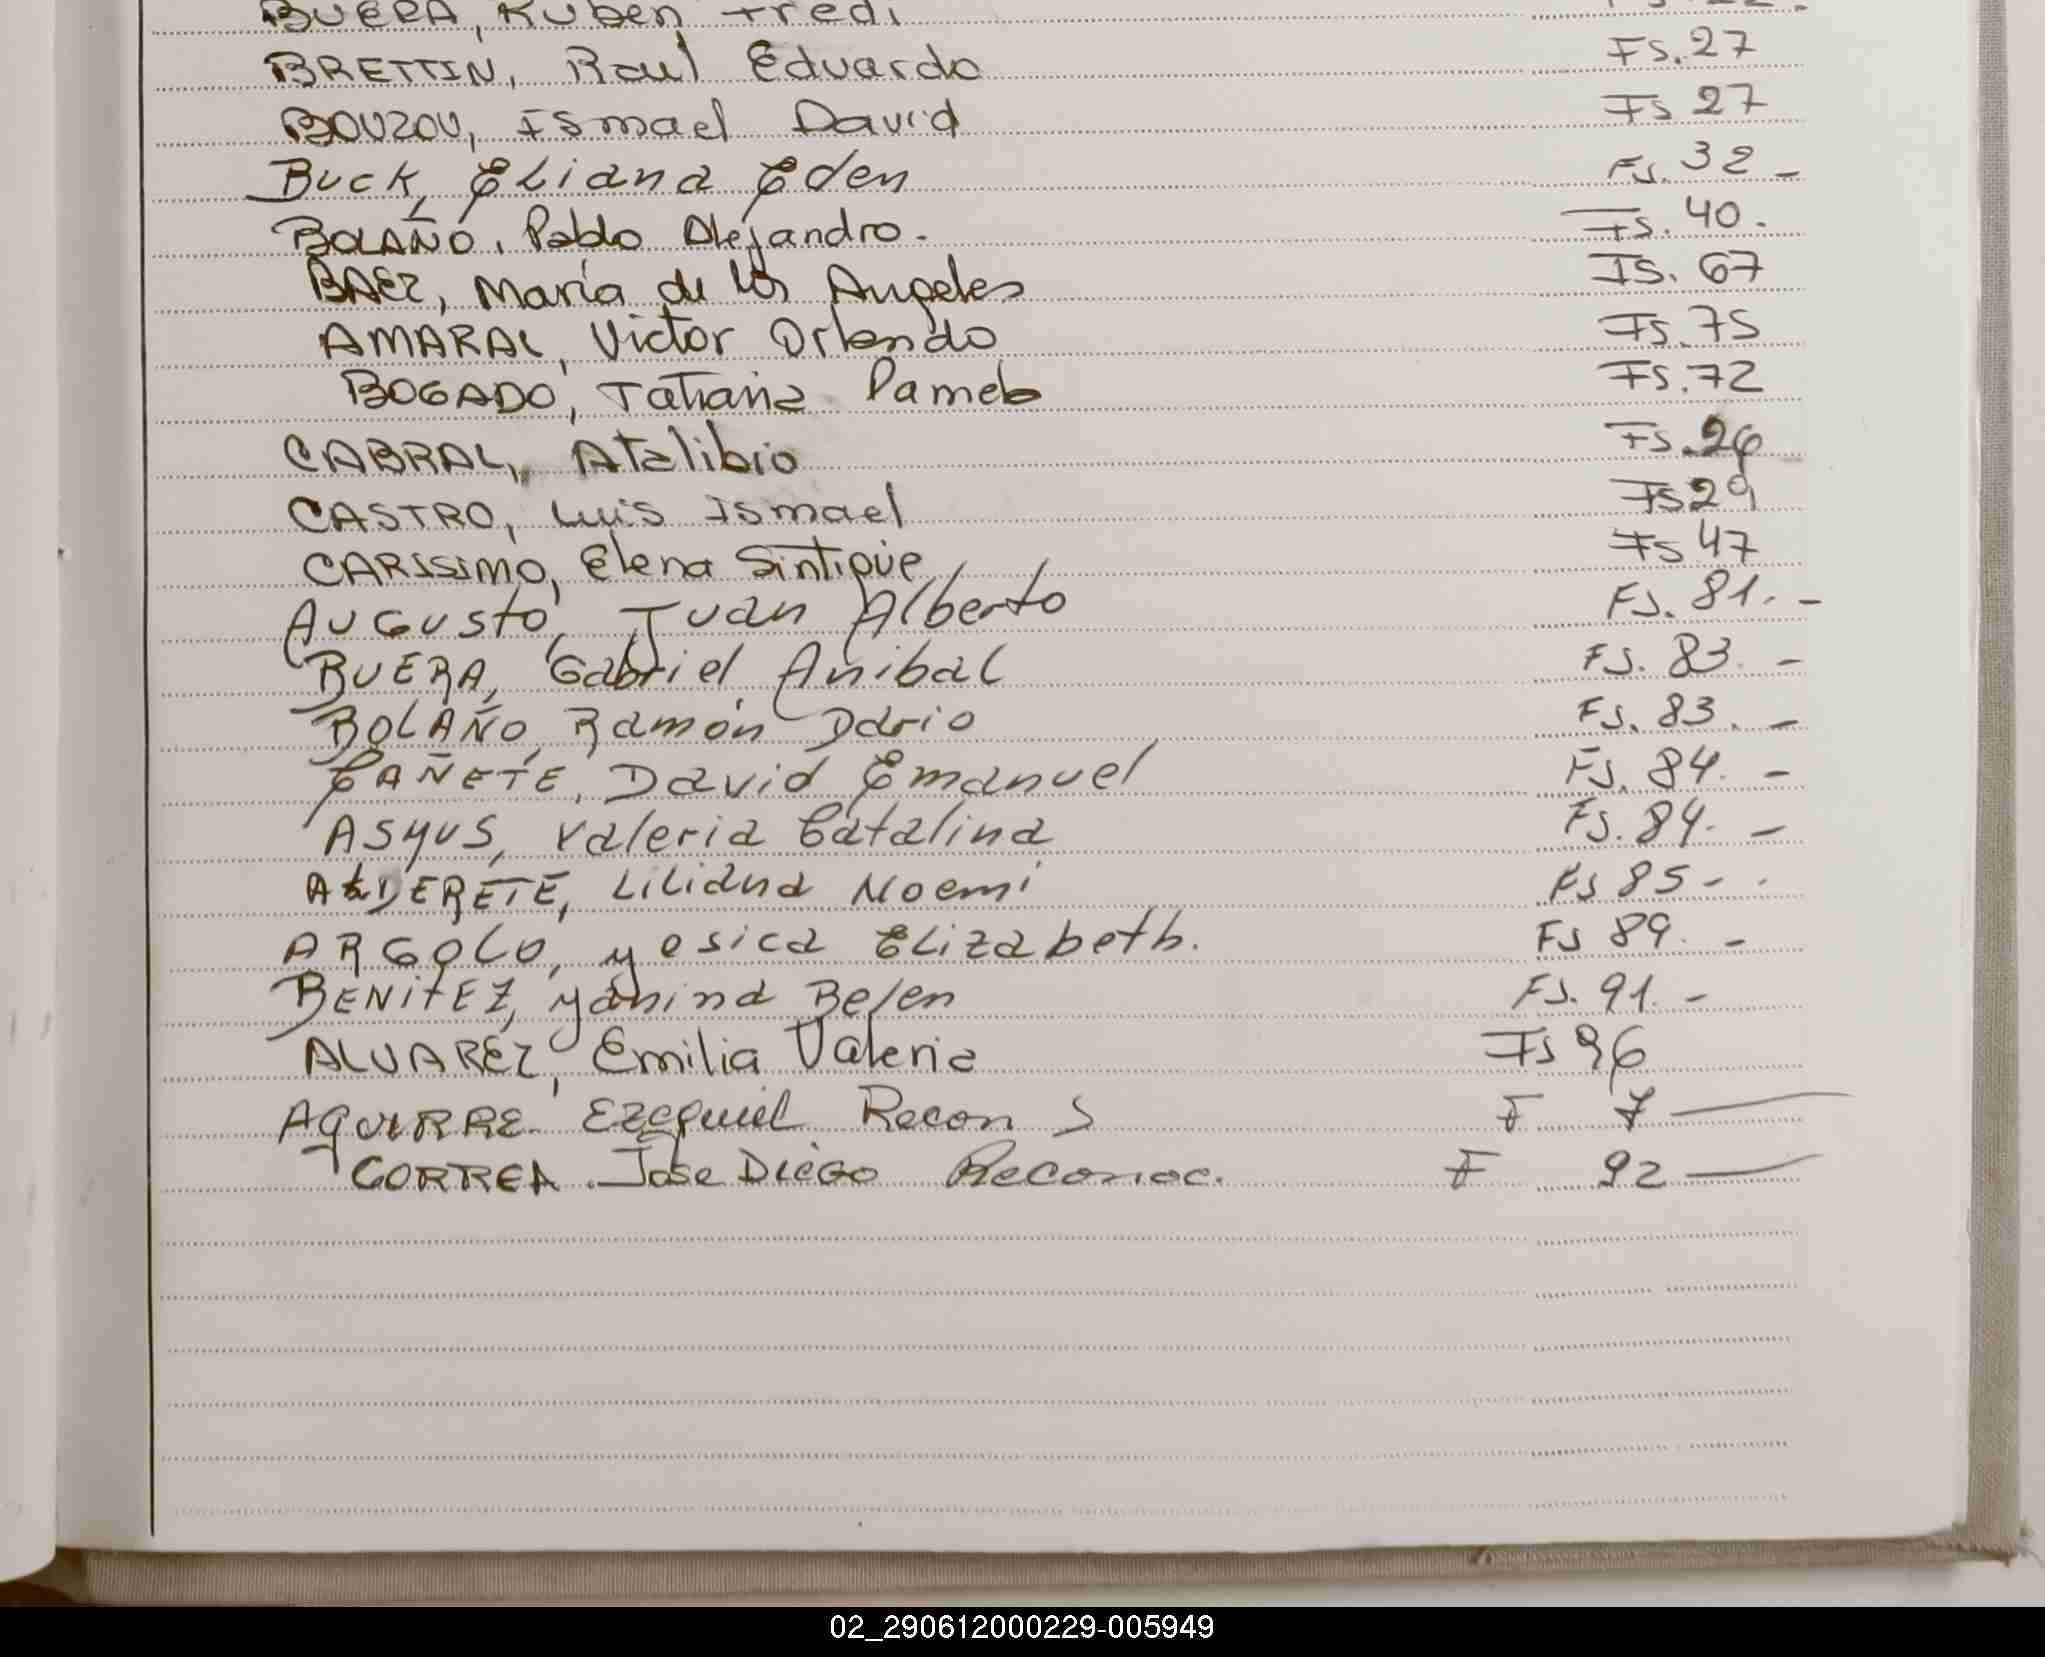 BUERA, Ruben Fredi Fs. 22.
BRETTIN, Raul Eduardo Fs. 27
BOUZOU, Ismael David Fs 27
BUCK, Eliana Eden Fs. 32 -
BOLAÑO, Pablo Alejandro. Fs. 40.
BAEZ, María de los Angeles Fs. 67
AMARAL, Victor Orlando Fs. 75
BOGADO, Tatiana Pamela Fs. 72
CABRAL, Atalibio Fs. 26
CASTRO, Luis Ismael Fs 29
CARISSIMO, Elena Sintique Fs 47
AUGUSTO, Juan Alberto Fs. 81. -
BUERA, Gabriel Anibal Fs. 83. -
BOLAÑO, Ramón Dario Fs. 83. -
CAÑETE, David Emanuel Fs. 84. -
ASYUS, Valeria Catalina Fs. 84. -
ALDERETE, Liliana Noemi Fs 85 -
ARGOLO, yesica Elizabeth. Fs 89. -
BENITEZ, yanina Belen Fs. 91. -
ALVAREZ, Emilia Valeria Fs 96
AGUIRRE Ezequiel Recon S F 7
CORREA. Jose DIEGO Reconoc. F 92
02_290612000229-005949